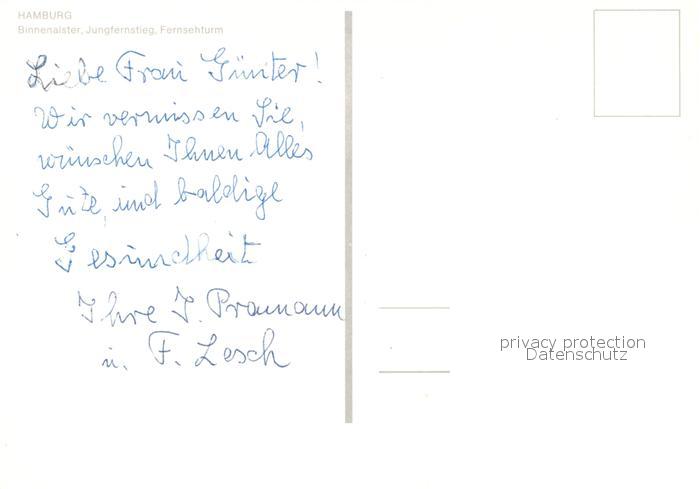 HAMBURG
Binnenalster, Jungfernstieg, Fernsehturm
Liebe Frau Günter!
Wir vermissen Sie,
wünschen Ihnen Alles
Gute, und baldige
Gesundheit
Ihre J. Pramann
u. F. Lesch
privacy protection
Datenschutz